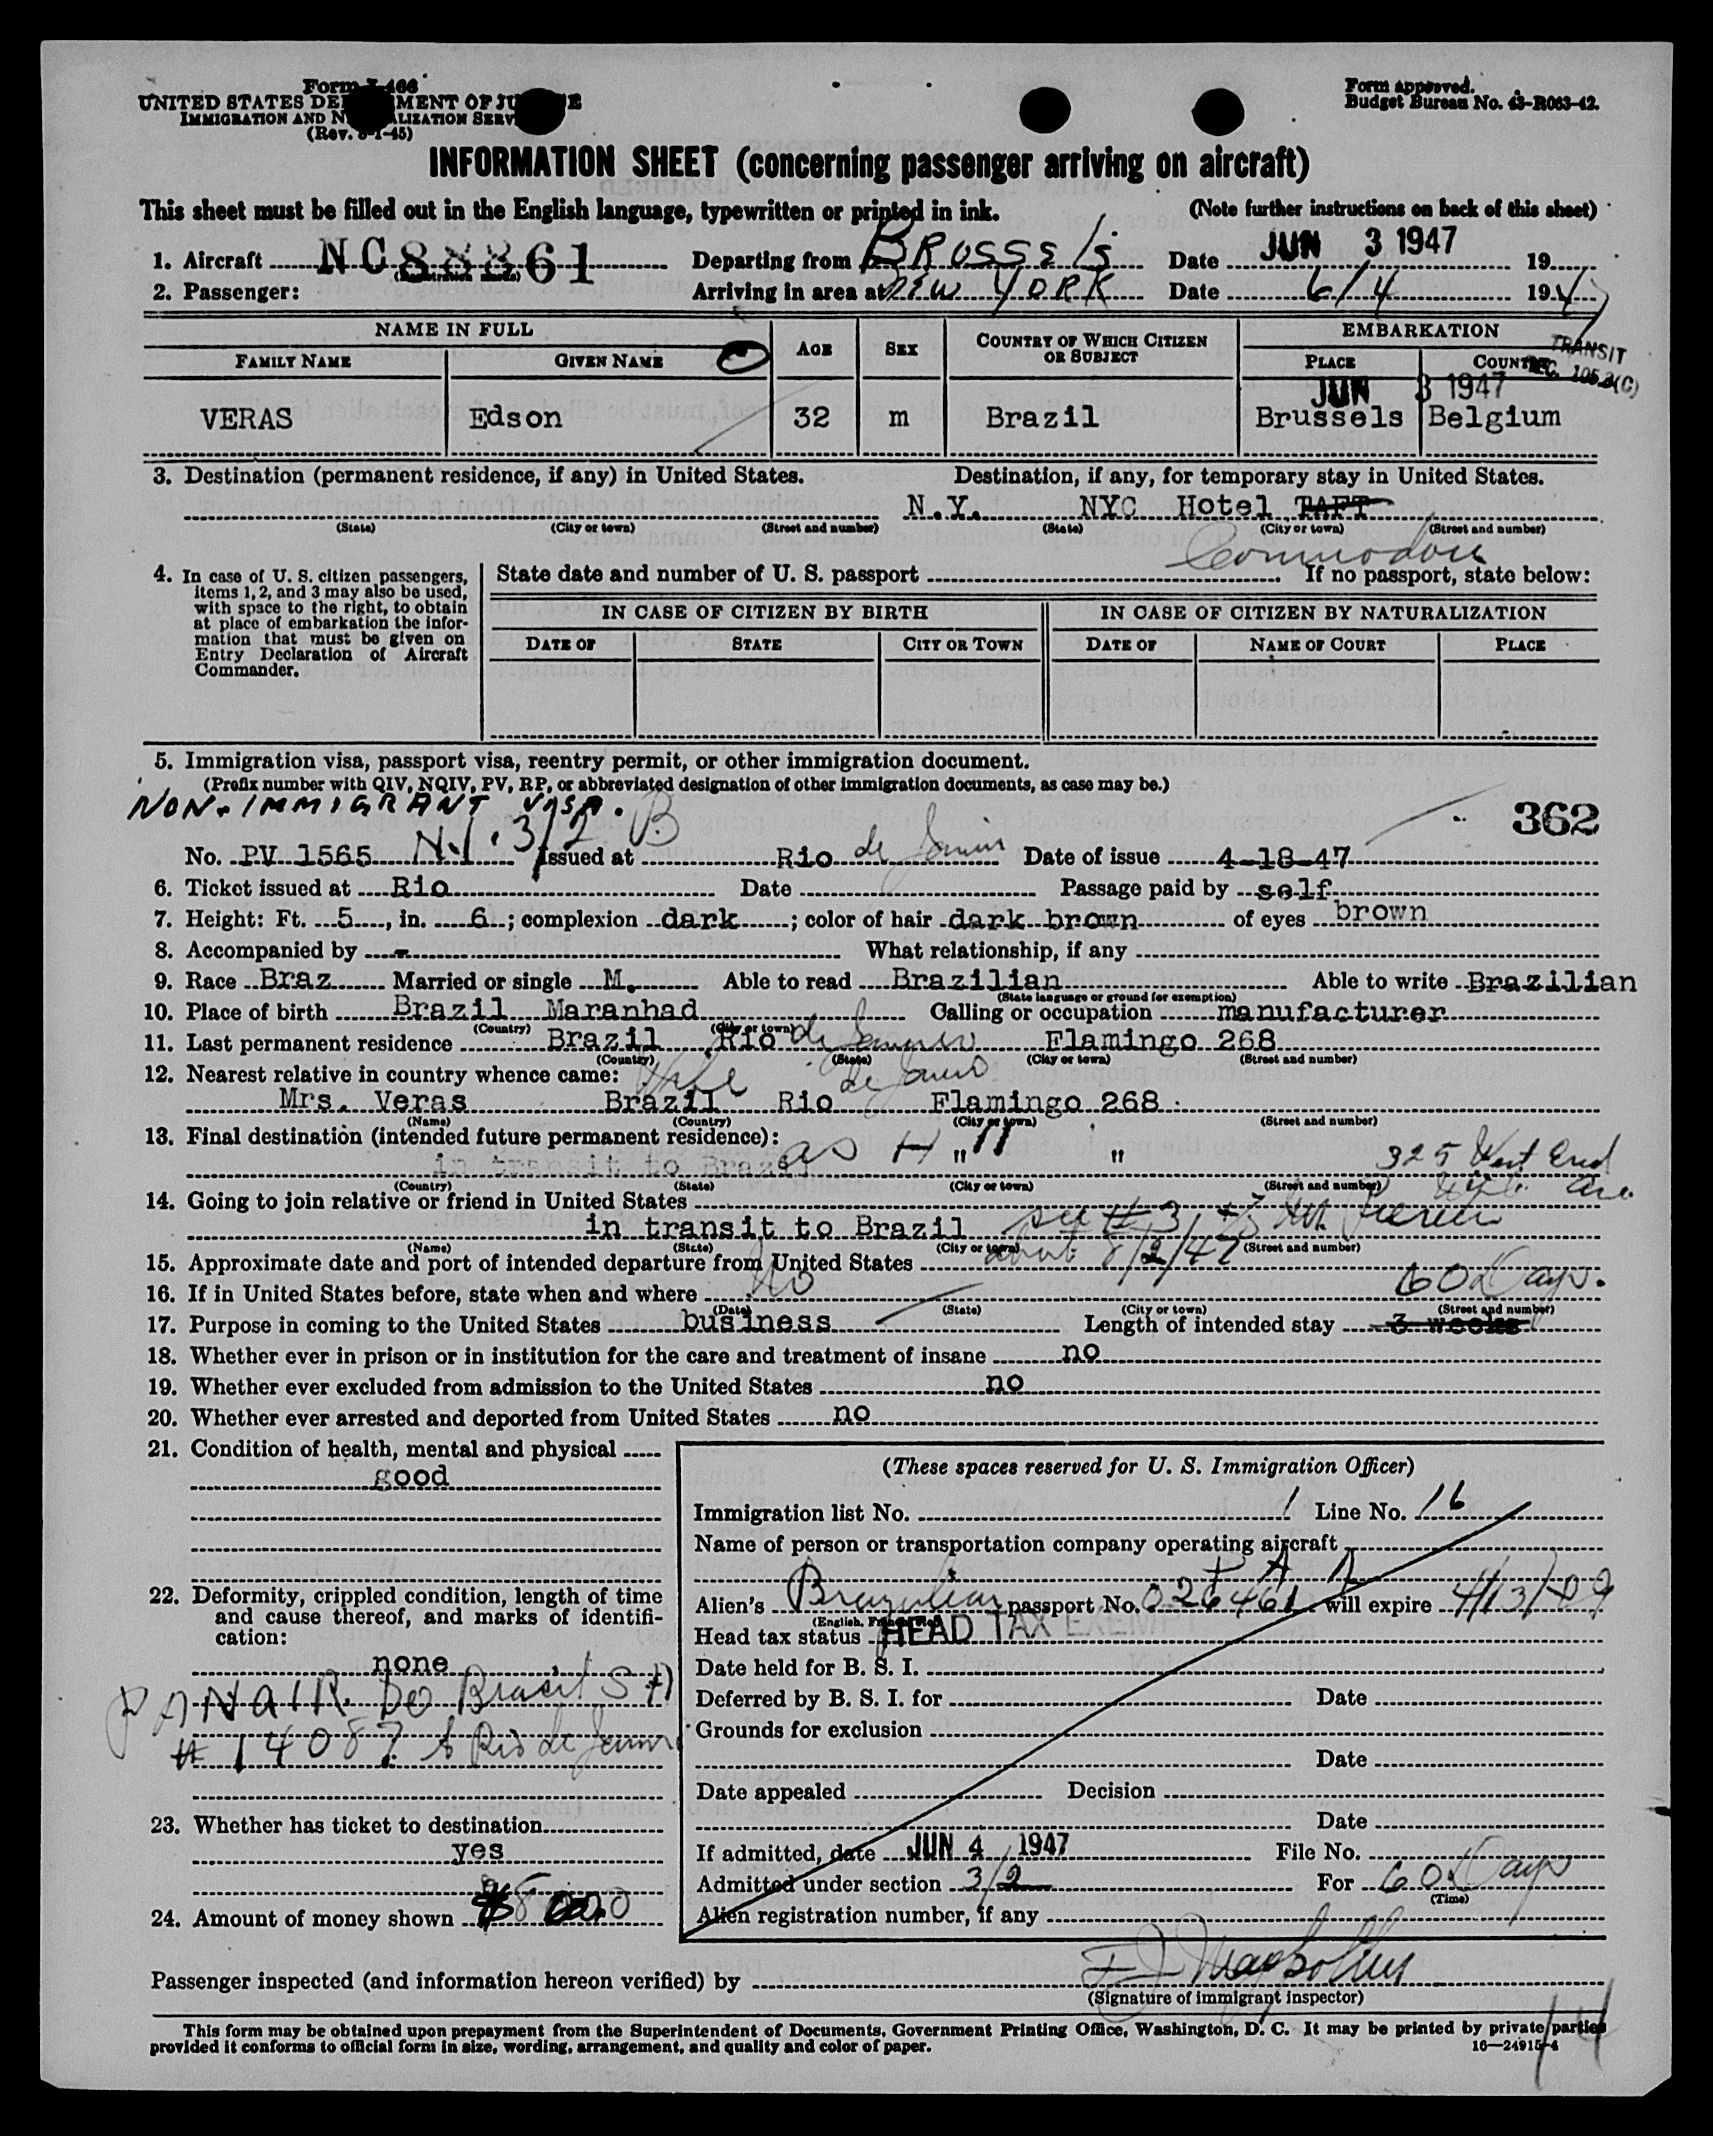 Form I-466
UNITED STATES DEPARTMENT OF JUSTICE
IMMIGRATION AND NATURALIZATION SERVICE
(Rev. 8-1-45)
Form approved.
Budget Bureau No. 43-R063-42.
INFORMATION SHEET (concerning passenger arriving on aircraft)
This sheet must be filled out in the English language, typewritten or printed in ink. (Note further instructions on back of this sheet)
1. Aircraft NC88861 Departing from BRUSSELS Date JUN 3 1947 19
(Registration marks)
2. Passenger: Arriving in area at NEW YORK Date 6/4 1947
NAME IN FULL AGE SEX COUNTRY OF WHICH CITIZEN OR SUBJECT EMBARKATION
FAMILY NAME GIVEN NAME PLACE COUNTRY
TRANSIT
SEC. 105.3(C)
JUN 3 1947
VERAS Edson 32 m Brazil Brussels Belgium
3. Destination (permanent residence, if any) in United States. Destination, if any, for temporary stay in United States.
N.Y. NYC Hotel TAFT
(State) (City or town) (Street and number) (State) (City or town) (Street and number)
Commodore
4. In case of U. S. citizen passengers, items 1, 2, and 3 may also be used, with space to the right, to obtain at place of embarkation the information that must be given on Entry Declaration of Aircraft Commander.
State date and number of U. S. passport If no passport, state below:
IN CASE OF CITIZEN BY BIRTH IN CASE OF CITIZEN BY NATURALIZATION
DATE OF STATE CITY OR TOWN DATE OF NAME OF COURT PLACE
5. Immigration visa, passport visa, reentry permit, or other immigration document.
(Prefix number with QIV, NQIV, PV, RP, or abbreviated designation of other immigration documents, as case may be.)
NON-IMMIGRANT VISA. 362
No. PV 1565 N.I. 3/2 B Issued at Rio de Janeiro Date of issue 4-18-47
6. Ticket issued at Rio Date Passage paid by self
7. Height: Ft. 5, in. 6; complexion dark; color of hair dark brown of eyes brown
8. Accompanied by - What relationship, if any
9. Race Braz Married or single M. Able to read Brazilian Able to write Brazilian
(State language or ground for exemption)
10. Place of birth Brazil Maranhad Calling or occupation manufacturer
(Country) (City or town)
11. Last permanent residence Brazil Rio de Janeiro Flamingo 268
(Country) (State) (City or town) (Street and number)
12. Nearest relative in country whence came: Wife de Janeiro
Mrs. Veras Brazil Rio Flamingo 268
(Name) (Country) (City or town) (Street and number)
13. Final destination (intended future permanent residence): as # 11
in transit to Brazil " " 325 West End Ave
(Country) (State) (City or town) (Street and number)
14. Going to join relative or friend in United States
in transit to Brazil see # 3
(Name) (State) (City or town) (Street and number)
15. Approximate date and port of intended departure from United States about 8/2/47
16. If in United States before, state when and where No 60 Days.
(Date) (State) (City or town) (Street and number)
17. Purpose in coming to the United States business Length of intended stay 3 weeks
18. Whether ever in prison or in institution for the care and treatment of insane no
19. Whether ever excluded from admission to the United States no
20. Whether ever arrested and deported from United States no
21. Condition of health, mental and physical
good
22. Deformity, crippled condition, length of time and cause thereof, and marks of identification:
none
PANAIR DO Brasil SA
# 14087 to Rio de Janeiro
23. Whether has ticket to destination
yes
24. Amount of money shown
(These spaces reserved for U. S. Immigration Officer)
Immigration list No. 1 Line No. 16
Name of person or transportation company operating aircraft
P A A
Alien's Brazilian passport No. 026461 will expire
Head tax status HEAD TAX EXEMPT
Date held for B. S. I.
Deferred by B. S. I. for Date
Grounds for exclusion
Date
Date appealed Decision
Date
If admitted, date JUN 4 1947 File No.
Admitted under section 3/2 For 60 Days
(Time)
Alien registration number, if any
Passenger inspected (and information hereon verified) by
(Signature of immigrant inspector)
This form may be obtained upon prepayment from the Superintendent of Documents, Government Printing Office, Washington, D. C. It may be printed by private parties
provided it conforms to official form in size, wording, arrangement, and quality and color of paper. 16—24915-4